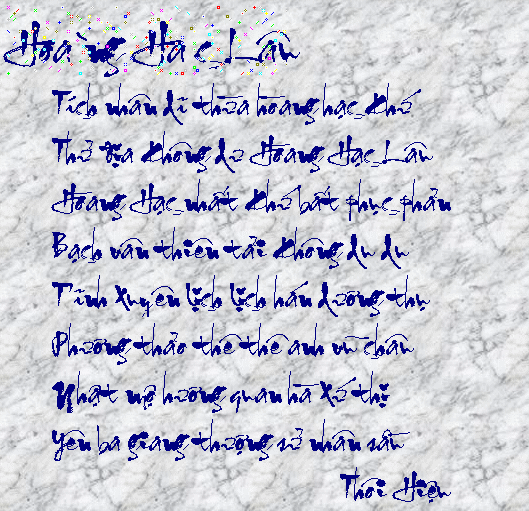 Hoàng Hạc Lâu
Tích nhân dĩ thừa hoàng hạc khứ
Thử địa không dư Hoàng Hạc Lâu
Hoàng Hạc nhất khứ bất phục phản
Bạch vân thiên tải không du du
Tình xuyên lịch lịch hán dương thụ
Phương thảo thê thê anh vũ châu
Nhật mộ hương quan hà xứ thị
Yên ba giang thượng sử nhân sầu
Thôi Hiệu